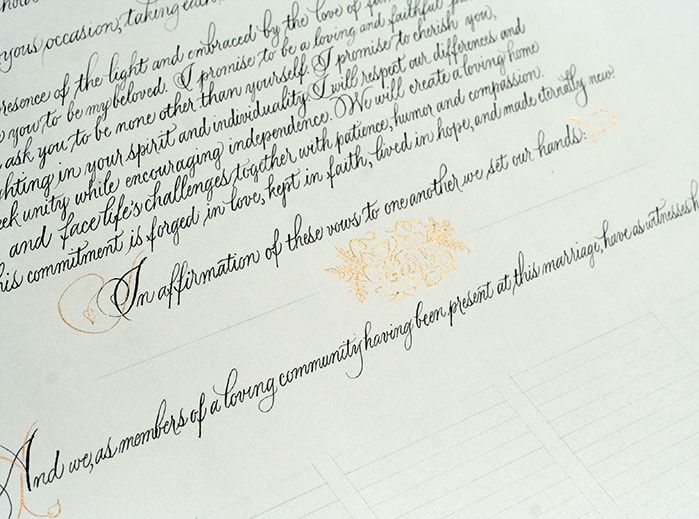 yous occasion, taking each
presence of the light and embraced by the love of
you to be my beloved. I promise to be a loving and faithful
ask you to be none other than yourself. I promise to cherish you,
ghting in your spirit and individuality. I will respect our differences and
eek unity while encouraging independence. We will create a loving home
and face life's challenges together with patience, humor and compassion.
his commitment is forged in love, kept in faith, lived in hope, and made eternally new.
In affirmation of these vows to one another we set our hands:
And we, as members of a loving community having been present at this marriage, have as witnesses h